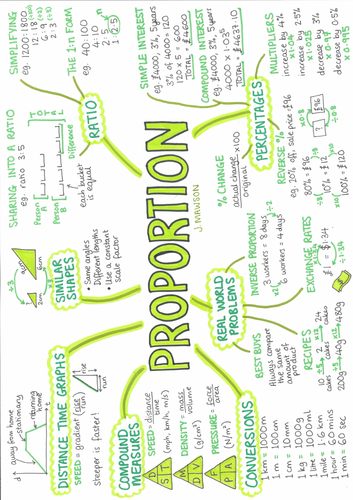 PROPORTION
J. MAWSON
SIMPLIFYING
eg. 1200:1800
12:18
6:9
2:3
THE 1:n FORM
eg. 40:100
4:10
2:5
1:2.5
RATIO
SHARING INTO A RATIO
eg. ratio 3:5
Person A
Person B
TOTAL
Difference
each bucket is equal
SIMPLE INTEREST
eg. £4000, 3%, 5 years
3% of 4000 = 120
120 x 5 = 600
TOTAL £4600
COMPOUND INTEREST
eg. £4000, 3%, 5 years
4000 x 1.03⁵
TOTAL £4637.10
MULTIPLIERS
increase by 4%
x 1.04
increase by 2.5%
x 1.025
decrease by 3%
x 0.97
decrease by 0.5%
x 0.995
PERCENTAGES
% CHANGE
actual change x100
original
REVERSE %
eg. 20% off, sale price £96
80% = £96
10% = £12
100% = £120
x 0.8
? £96
÷0.8
SIMILAR SHAPES
Same angles
Different lengths
Use a constant scale factor
x3
2cm
6cm
REAL WORLD PROBLEMS
INVERSE PROPORTION
3 workers = 8 days
6 workers = 4 days
x2
÷2
EXCHANGE RATES
£1 = $1.34
x1.34
÷1.34
BEST BUYS
Always compare the same amount of product
RECIPES
10 cakes
2 cakes
24 cakes
÷5
x12
200g → 40g → 480g
DISTANCE TIME GRAPHS
d
t
away from home
stationary
returning home
SPEED = gradient (rise/run)
rise
run
Steeper is faster!
COMPOUND MEASURES
SPEED = distance
time
(mph, km/h, m/s)
D
S T
DENSITY = mass
volume
(g/cm³)
M
D V
PRESSURE = force
area
(N/m²)
F
P A
CONVERSIONS
1 km = 1000m
1 m = 100cm
1 cm = 10mm
1 kg = 1000g
1 litre = 1000ml
1 mile = 1.6 km
1 hour = 60 mins
1 min = 60 sec